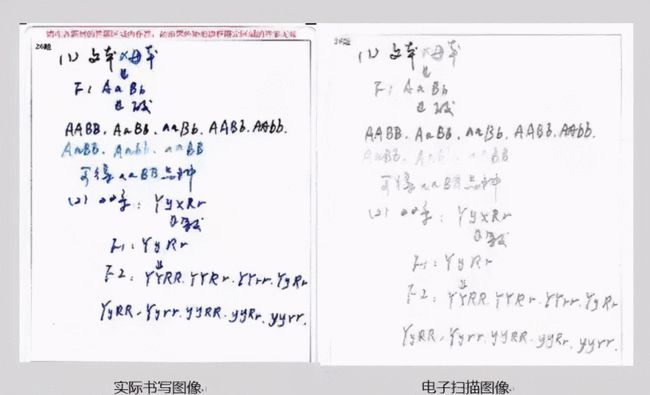 请在各题目的答题区域内作答，超出黑色矩形边框限定区域的答案无效
26题
(1) 父本×母本
F1 AaBb
AABB. AaBb. aaBb. AABb. AAbb.
AaBB. Aabb. aaBB
可得aaBB品种
YyxRr
F1: YyRr
F2: YYRR. YYRr. YYrr. YyRr
YyRR. Yyrr. yyRR. yyRr. yyrr.
26题
(1) 父本×母本
F1 AaBb
AABB. AaBb. aaBb. AABb. AAbb.
AaBB. Aabb. aaBB
可得aaBB品种
YyxRr
F1: YyRr
F2: YYRR. YYRr. YYrr. YyRr
YyRR. Yyrr. yyRR. yyRr. yyrr.
实际书写图像
电子扫描图像